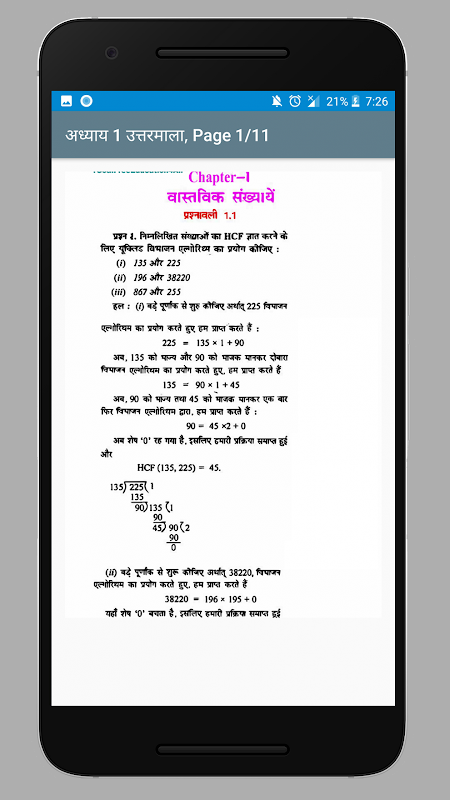 21% 7:26
अध्याय 1 उत्तरमाला, Page 1/11
Chapter–1
वास्तविक संख्यायें
प्रश्नावली 1.1
प्रश्न 1. निम्नलिखित संख्याओं का HCF ज्ञात करने के
लिए यूक्लिड विभाजन एल्गोरिथ्म का प्रयोग कीजिए :
(i) 135 और 225
(ii) 196 और 38220
(iii) 867 और 255
हल : (i) बड़े पूर्णांक से शुरु कीजिए अर्थात् 225 विभाजन
एल्गोरिथम का प्रयोग करते हुए हम प्राप्त करते हैं :
225 = 135 × 1 + 90
अब, 135 को भाज्य और 90 को भाजक मानकर दोबारा
विभाजन एल्गोरिथम का प्रयोग करते हुए, हम प्राप्त करते हैं
135 = 90 × 1 + 45
अब, 90 को भाज्य तथा 45 को भाजक मानकर एक बार
फिर विभाजन एल्गोरिथम द्वारा, हम प्राप्त करते हैं :
90 = 45 ×2 + 0
अब शेष '0' रह गया है, इसलिए हमारी प्रक्रिया समाप्त हुई
और
HCF (135, 225) = 45.
135) 225 ( 1
135
90) 135 ( 1
90
45) 90 ( 2
90
0
(ii) बड़े पूर्णांक से शुरू कीजिए अर्थात् 38220, विभाजन
एल्गोरिथम का प्रयोग करते हुए, हम प्राप्त करते हैं
38220 = 196 × 195 + 0
यहाँ शेष '0' बचता है, इसलिए हमारी प्रक्रिया समाप्त हुई